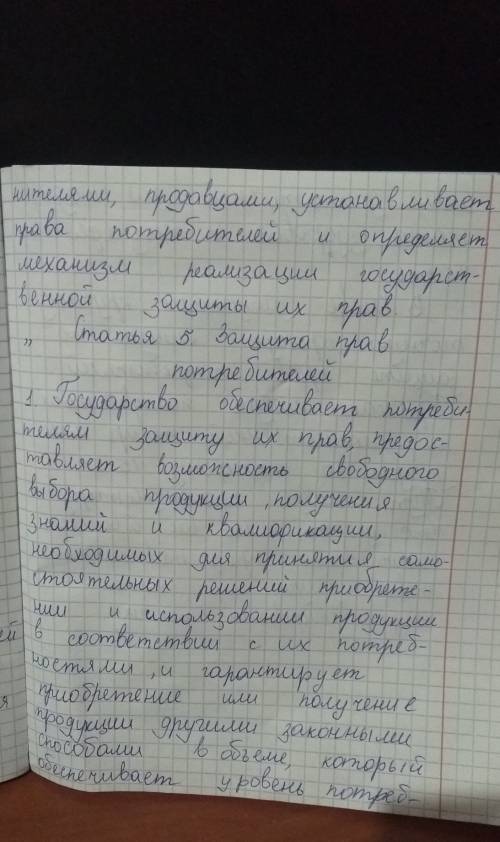 нителями, продавцами, устанавливает
права потребителей и определяет
механизм реализации государст-
венной защиты их прав
„ Статья 5. Защита прав
потребителей
1. Государство обеспечивает потреби-
телям защиту их прав, предос-
тавляет возможность свободного
выбора продукции, получения
знаний и квалификации,
необходимых для принятия само-
стоятельных решений приобрете-
нии и использовании продукции
в соответствии с их потреб-
ностями, и гарантирует
приобретение или получение
продукции другими законными
способами в объеме, который
обеспечивает уровень потреб-
ей
я